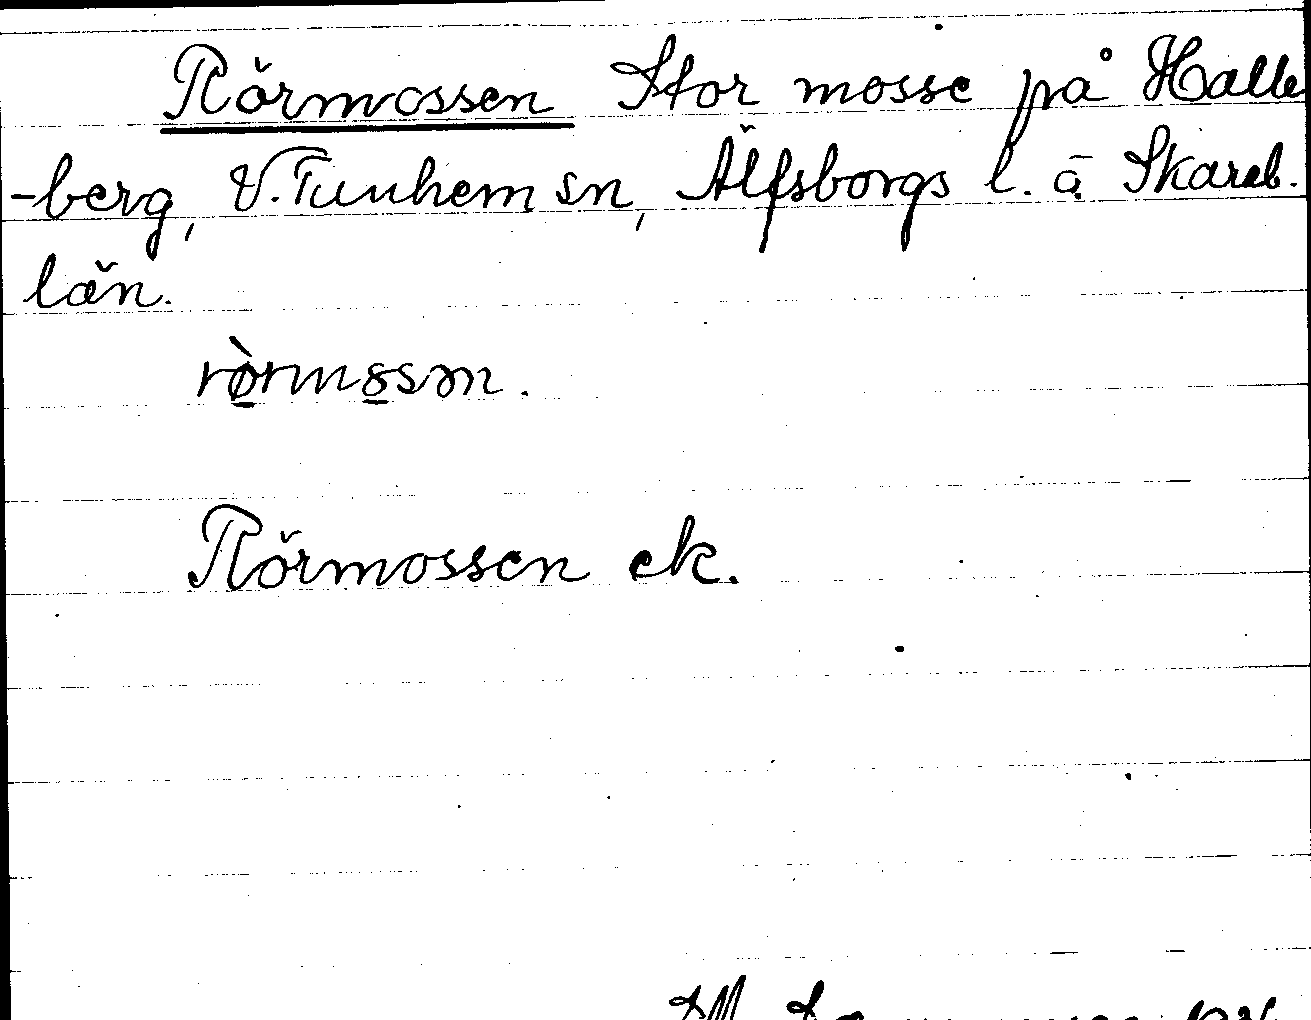 Rörmossen Stor mosse på Halle
-berg, V. Tunhem sn, Älfsborgs l. å Skarab.
län.
rø̀rmɔsən.
Rörmossen ek.